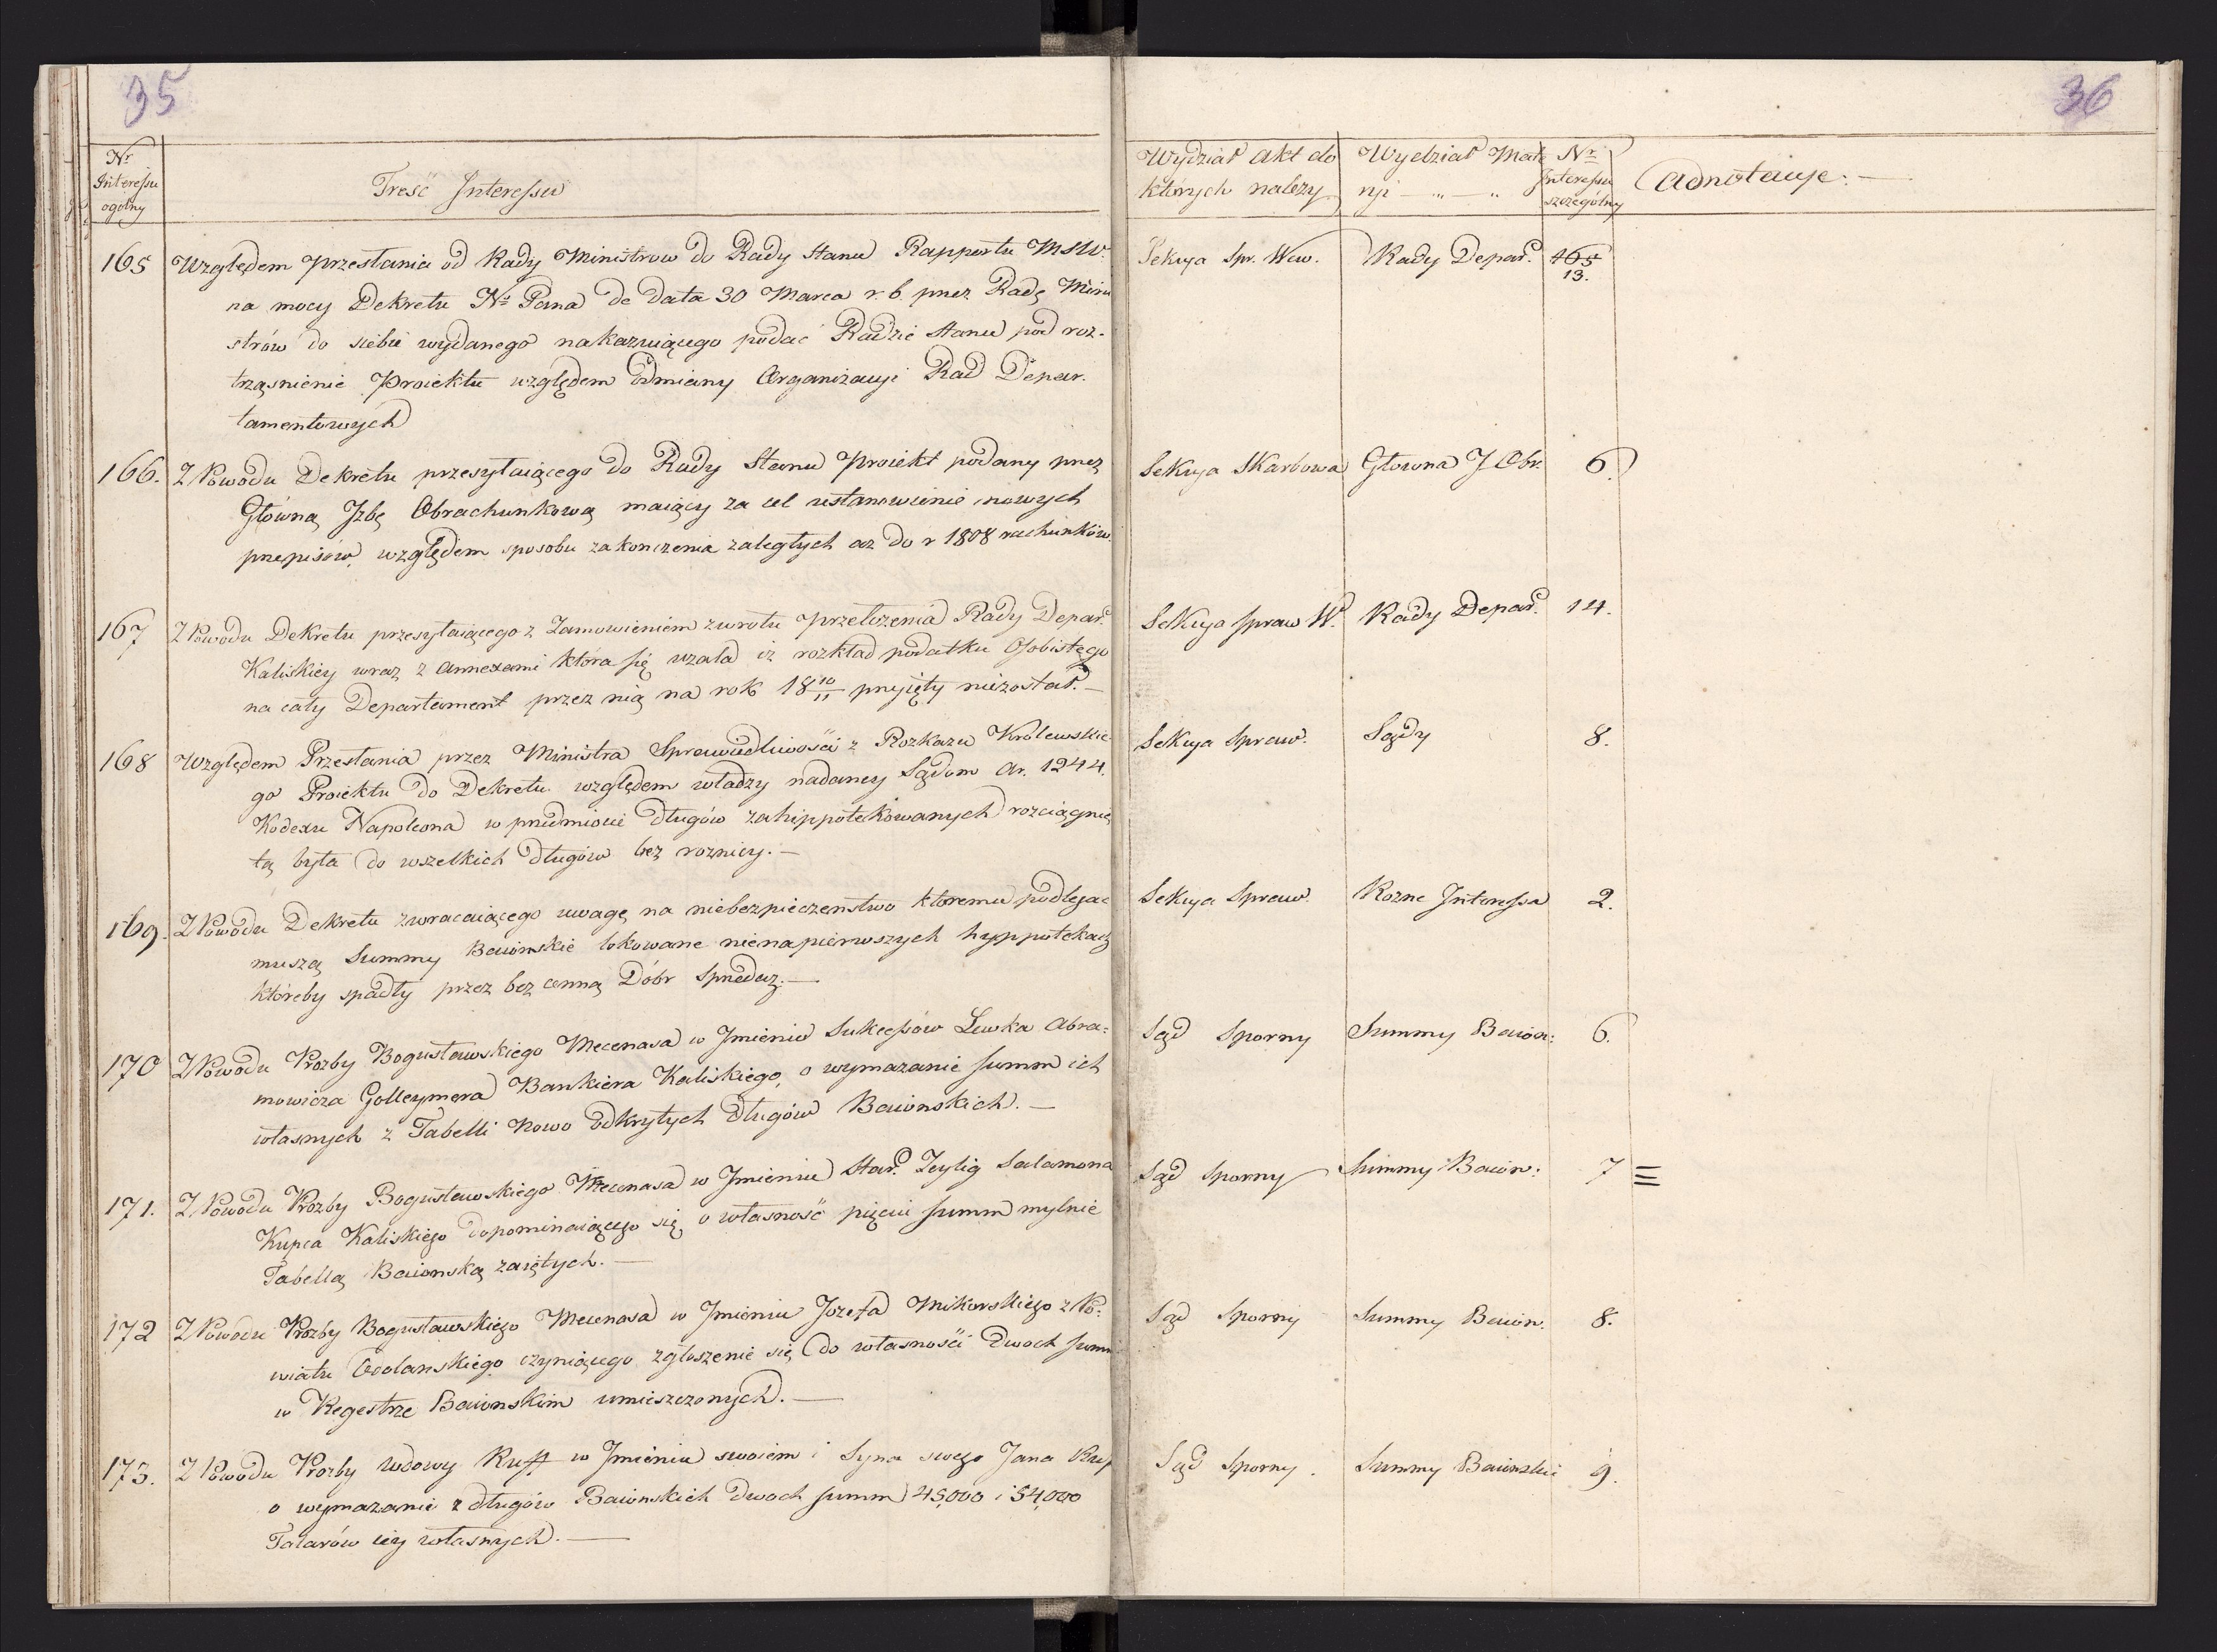 35
Nr Interessu ogólny
Treść Interessu
165 Względem przesłania od Rady Ministrow do Rady Stanu Rapportu MSW.
na mocy Dekretu No Pana de data 30 Marca r. b. przez Radę Mini
strów do siebie wydanego nakazuiącego podać Radzie Stanu pod roz-
trząśnienie Proiektu względem Odmiany Organizacyi Rad Depar.
tamentowych
166. Z Powodu Dekretu przesyłaiącego do Rady Stanu Proiekt podany przez
Główną Izbę Obrachunkową maiący za cel ustanowienie nowych
przepisów, względem sposobu zakonczenia zaległych az do r 1808 rachunków.
167 Z Powodu Dekretu przesyłaiącego z Zamowieniem zwrotu przełożenia Rady Depart.
Kaliskiey wraz z annexami która się uzala iż rozkład podatku Osobistego
na cały Departament przez nią na rok 18 10/11 przyięty niezostał. —
168 Względem Przesłania przez Ministra Sprawiedliwości z Rozkazu Królewskie
go Proiektu do Dekretu względem władzy nadaney Sądom Ar. 1244.
Kodexu Napoleona w przedmiocie długów zahippotekowanych rozciągnię
tą była do wszelkich długów bez roznicy. —
169. Z Powodu Dekretu zwracaiącego uwagę na niebezpieczeństwo ktoremu podlegać
muszą Summy Baionskie lokowane nienapierwszych hyppotekach
któreby spadły przez bez cenną Dóbr Sprzedaz. —
170 Z Powodu Prozby Bogusławskiego Mecenasa w Jmieniu Sukcessów Lewka Abra-
mowicza Golleymera Bankiera Kaliskiego, o wymazanie summ ich
własnych z Tabelli Nowo Odkrytych Długów Baionskich. —
171. Z Powodu Prozby Bogusławskiego Mecenasa w Jmieniu Star. Zeylig Salamona
Kupca Kaliskiego dopominaiącego się o własność pięciu summ mylnie
Tabellą Baionską zaiętych. —
172 Z Powodu Prozby Bogusławskiego Mecenasa w Jmieniu Jozefa Mikorskiego z Po-
wiatu czyniącego zgłoszenie się do własności Dwoch summ
w Regestrze Baionskim umieszczonych. —
173. Z Powodu Prozby Wdowy Ruff w Jmieniu swoiem i Syna swego Jana Ruf
o wymazanie z długów Baionskich Dwoch summ 45,000 i 54,000
Talarów iey własnych. —
36
Wydział Akt do których nalezy
Wydział Mate ryi — „ — „
Nr Interessu szczególny
Adnotacye: —
Sekcya Spr. Wew. Rady Depart. 165
13.
Sekcya Skarbowa Głowna J Obr. 6.
Sekcya Spraw W. Rady Depart. 14.
Sekcya Spraw. Sądy 8.
Sekcya Spraw. Rozne Interessa 2.
Sąd Sporny Summy Baion: 6.
Sąd Sporny Summy Baion: 7
Sąd Sporny Summy Baion. 8.
Sąd Sporny. Summy Baionskie 9.